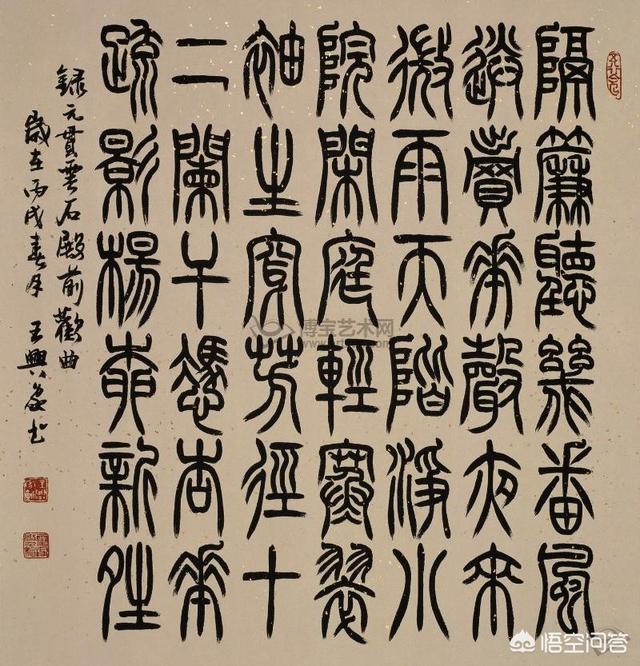 隔簾聽幾番風
送賣花聲夜來
微雨天階淨小
院閑庭輕寒翠
袖生穿芳徑十
二闌干憑杏花
疏影楊柳新晴
錄元貫雲石殿前歡曲
歲在丙戌春月 王興 書
博宝艺术网
悟空问答